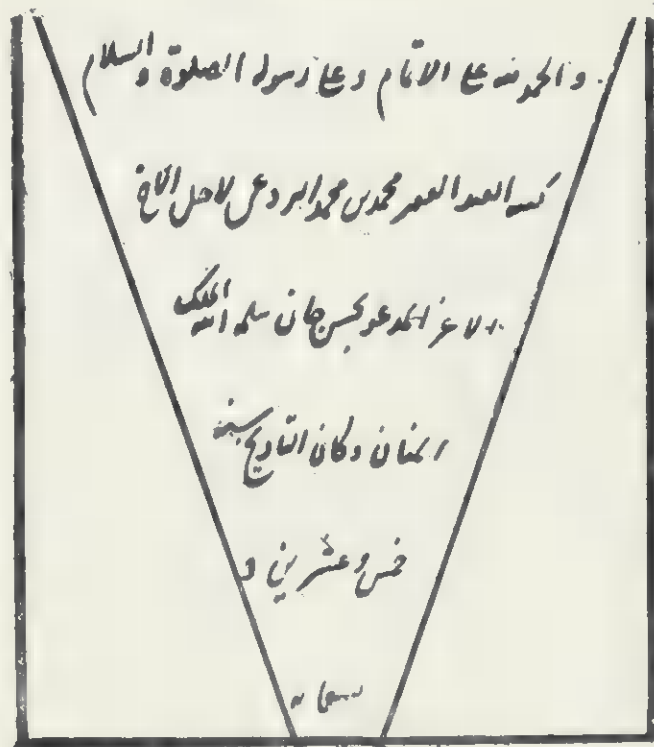 والحمد لله على الاتمام وعلى رسوله الصلوة والسلام
كتبه العبد الفقير محمد بن محمد البردعي لاجل الاخ
الاعز المدعو بحسن جان سلمه الله الملك
المنان وكان التاريخ سنة
خمس وعشرين و
تسعمائة